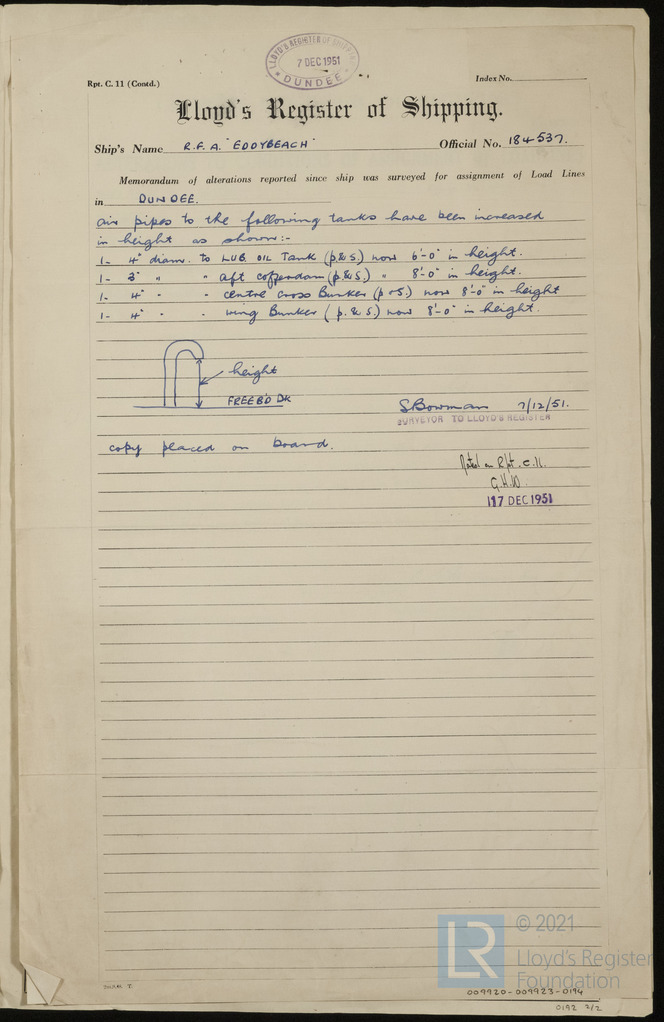 LLOYD'S REGISTER OF SHIPPING
7 DEC 1951
DUNDEE
Rpt. C. 11 (Contd.)
Index No.
Lloyd's Register of Shipping.
Ship's Name R.F.A. "EDDYBEACH" Official No. 184537.
Memorandum of alterations reported since ship was surveyed for assignment of Load Lines
in DUNDEE.
air pipes to the following tanks have been increased
in height as shown:-
1- 4" diam. to LUB OIL Tank (p & s.) now 6'-0" in height.
1- 3" " " aft cofferdam (p & s.) " 8'-0" in height.
1- 4" " " centre cross Bunker (p & s.) now 8'-0" in height
1- 4" " " wing Bunker (p. & s.) now 8'-0" in height.
height
FREEB'D DK
S Bowman 7/12/51.
SURVEYOR TO LLOYD'S REGISTER
copy placed on board.
Noted on Rpt. C.11.
G.H.W.
17 DEC 1951
LR
© 2021
Lloyd's Register
Foundation
009920-009923-0194
0192 2/2